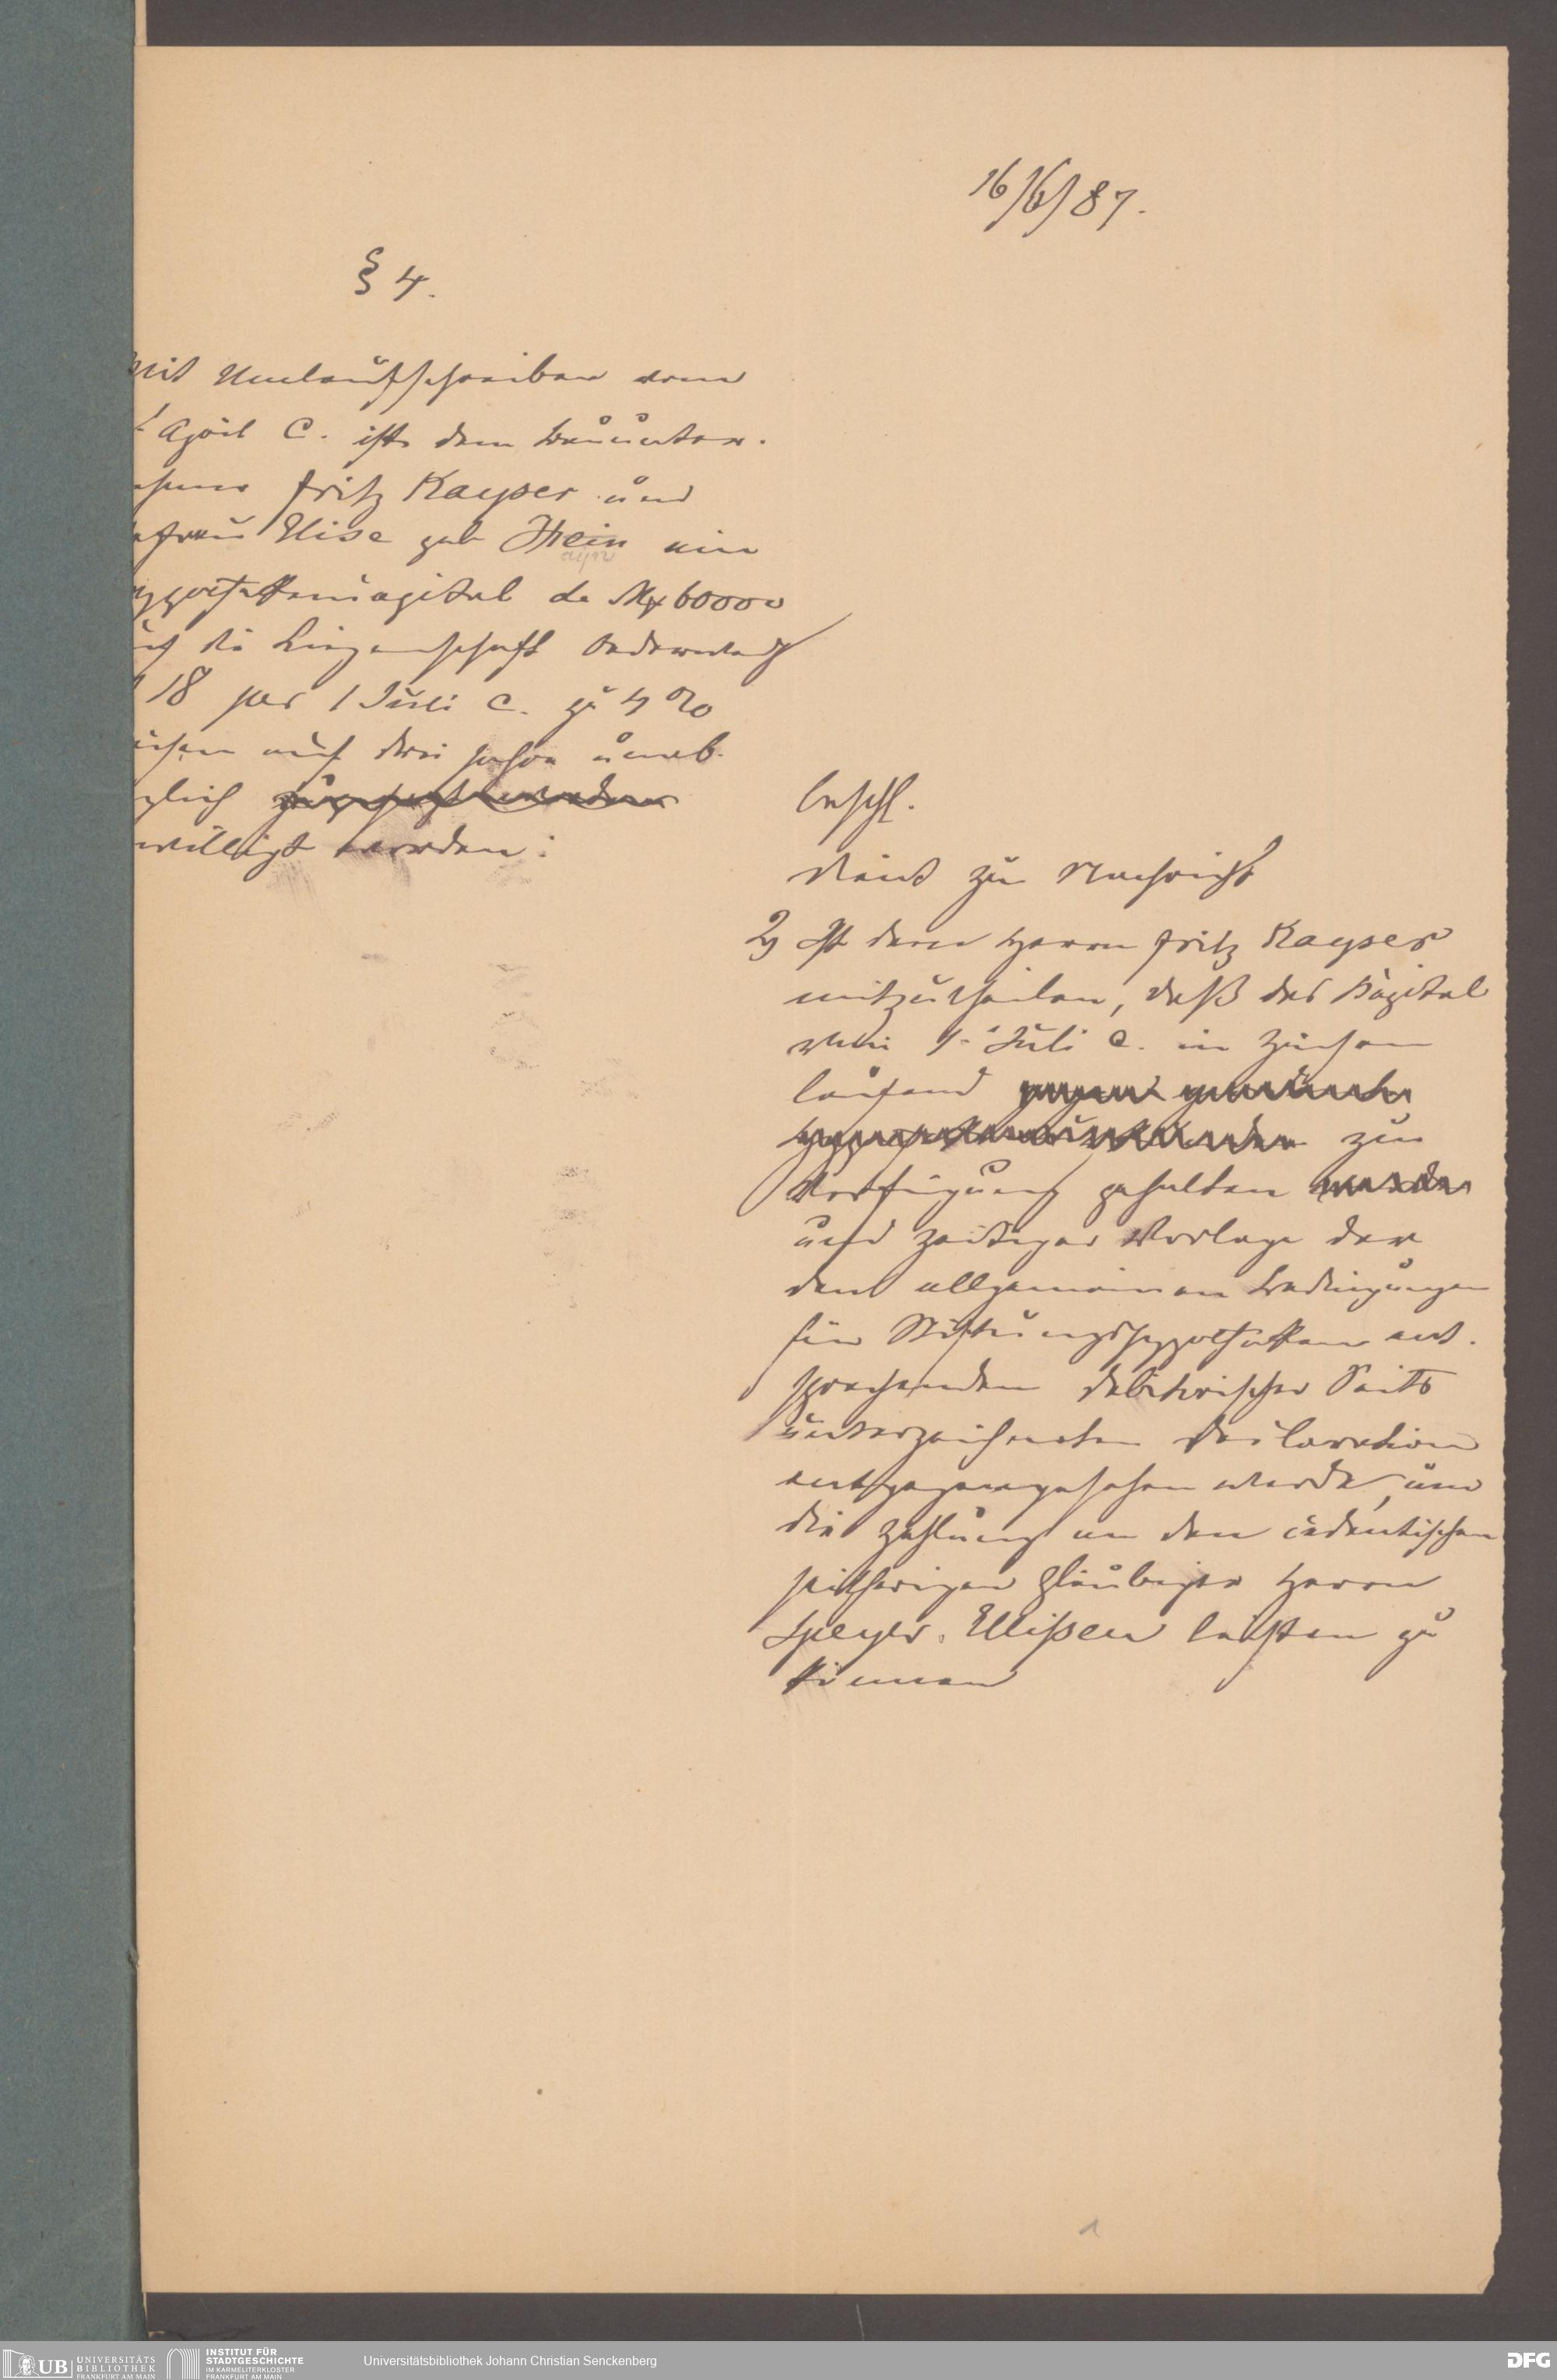 16/6/87.
§ 4.
Mit Umlaufschreiben vom
April c. ist dem Bauunter-
ehmer Fritz Kayser und
efrau Elise geb. Hein ein
ayn
ypothekenkapital de Mk 60000
uf die Liegenschaft Oederweg
18 per 1 Juli c. zu 4 %
insen auf drei Jahre unab-
glich zugesagt worden
willigt worden:
beschl.
dient zur Nachricht
2) Ist dem Herrn Fritz Kayser
mitzutheilen, daß das Kapital
vom 1. Juli c. in Zinsen
laufend gegen
zur
Verfügung gehalten werde
und zeitiger Vorlage der
den allgemeinen Bedingungen
für Stiftungshypotheken ent-
sprechenden debitorischer Seits
unterzeichneten Declaration
entgegengesehen werde, um
die Zahlung an den cedentischen
seitherigen Gläubiger Herrn
Speyer-Ellißen leisten zu
können
1
UB UNIVERSITÄTS
BIBLIOTHEK
FRANKFURT AM MAIN
INSTITUT FÜR
STADTGESCHICHTE
IM KARMELITERKLOSTER
FRANKFURT AM MAIN
Universitätsbibliothek Johann Christian Senckenberg
DFG